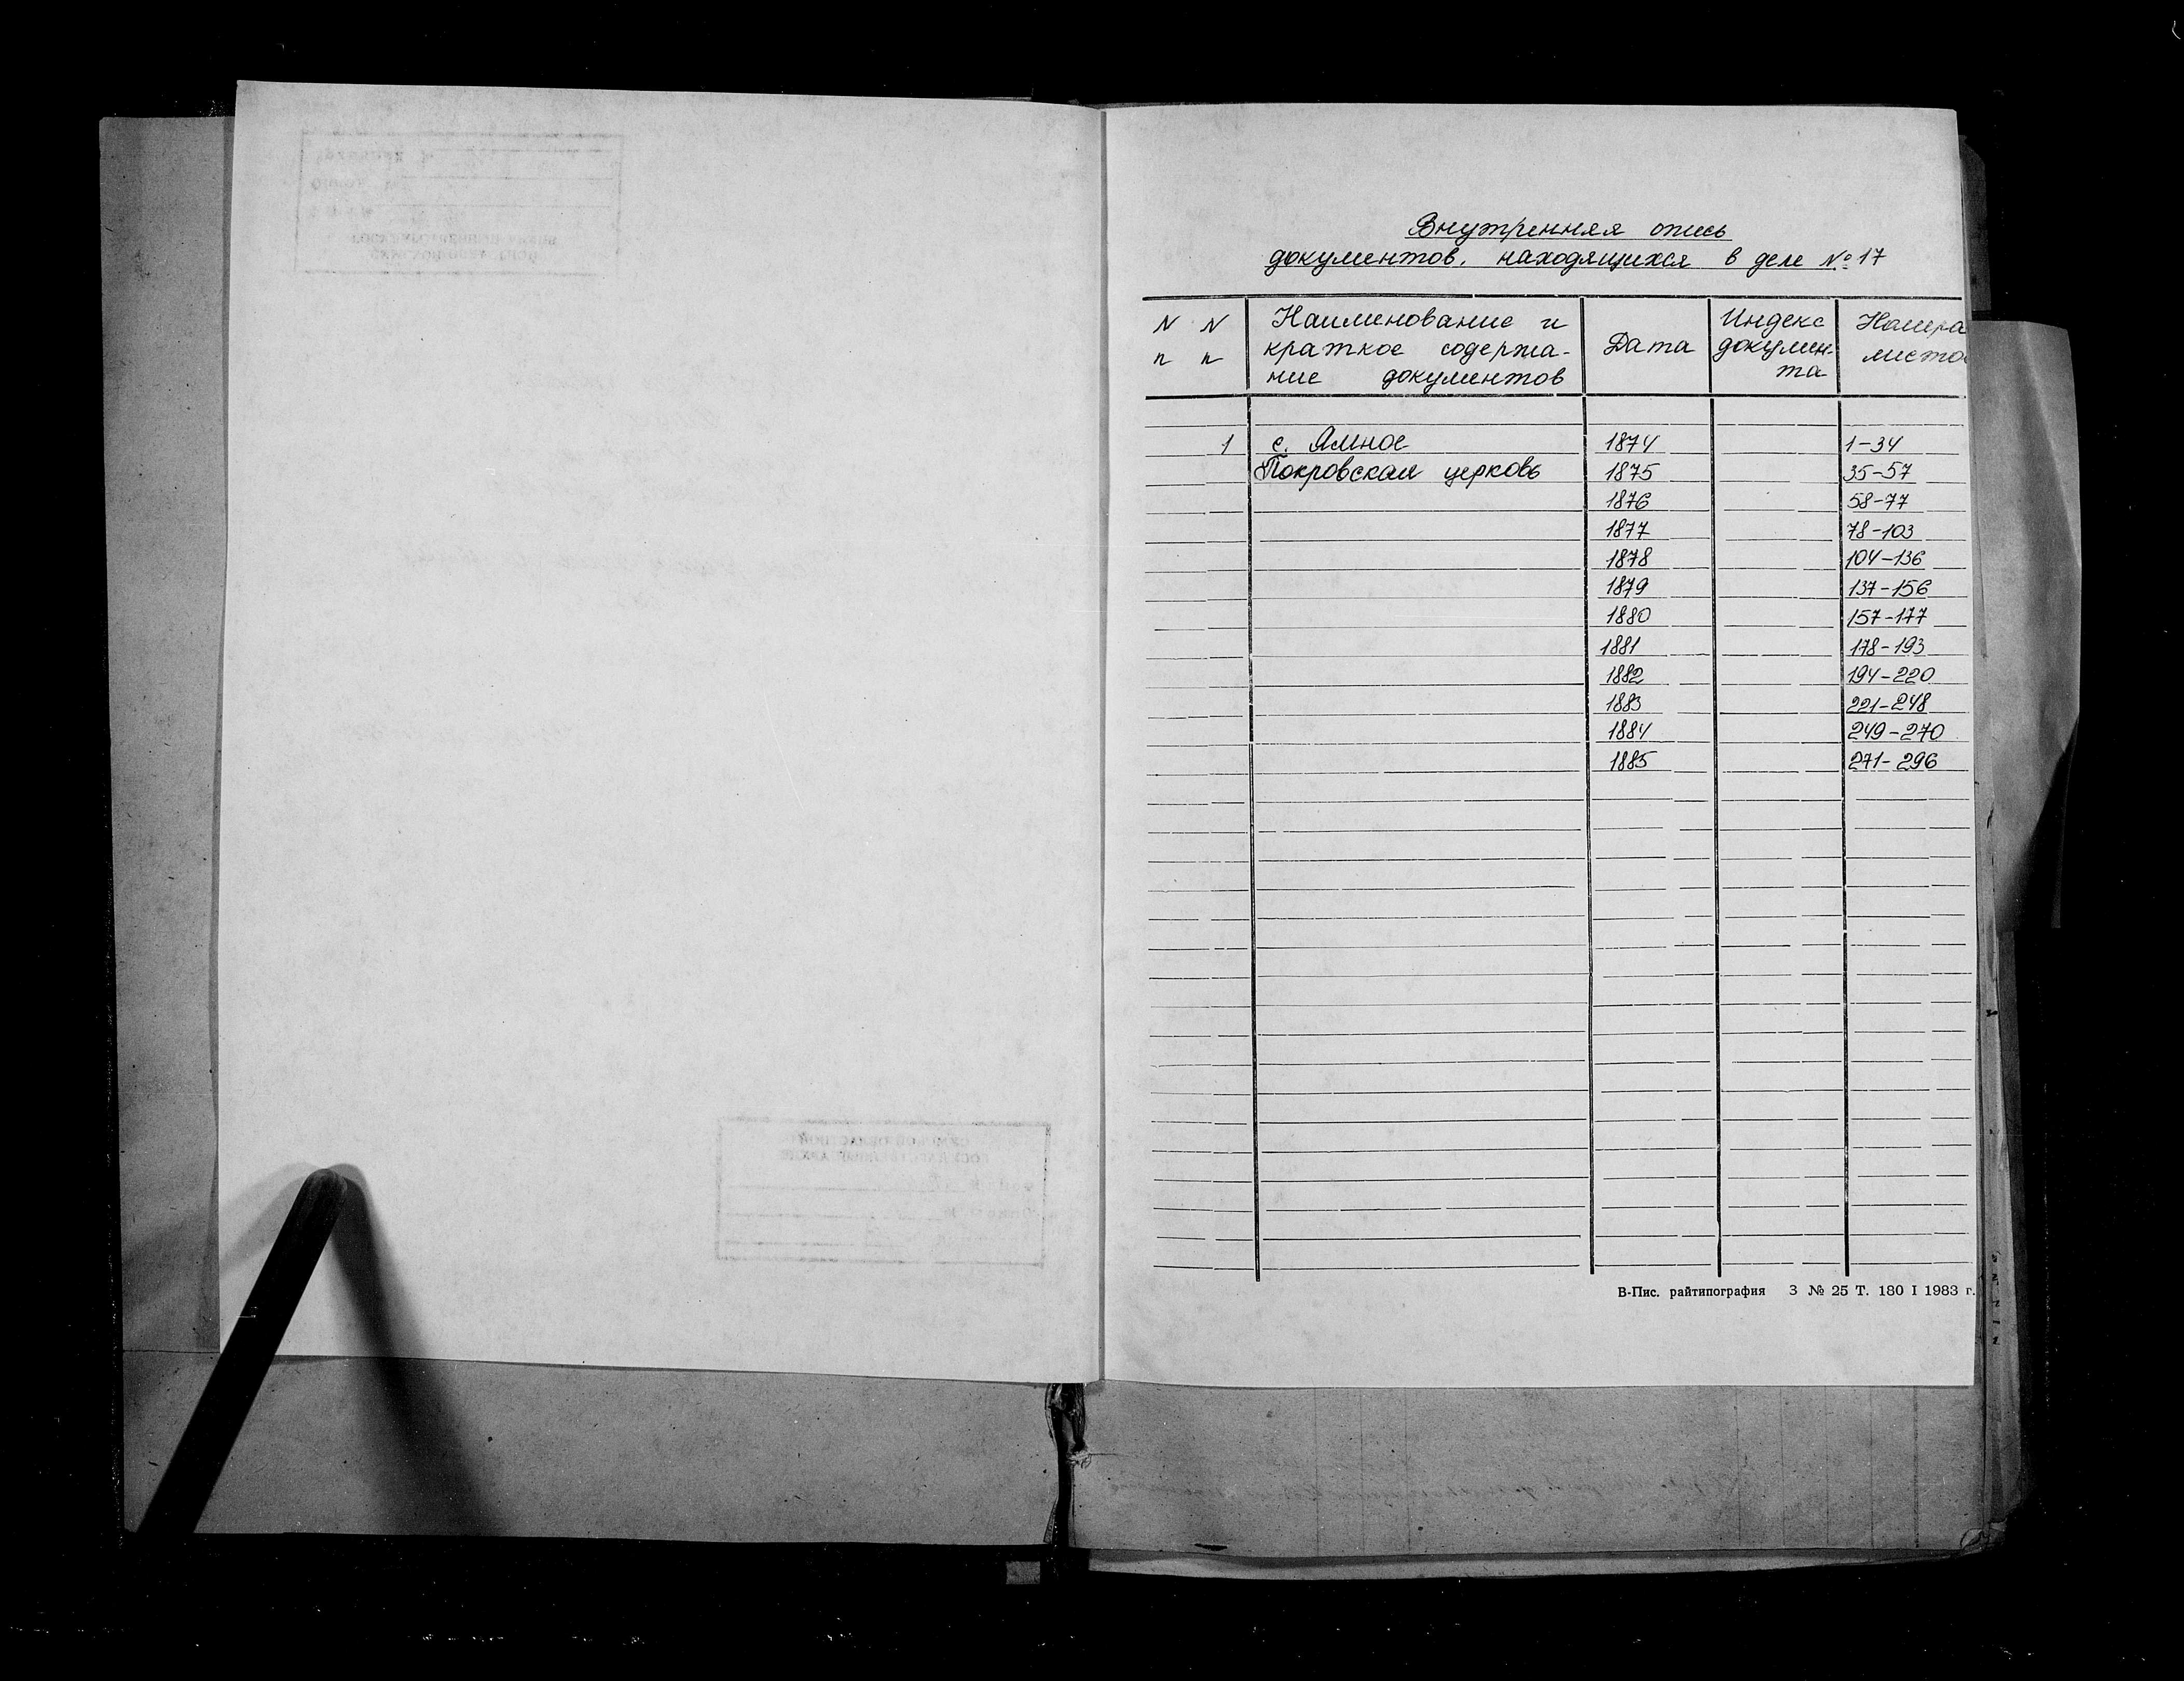 Внутренняя опись
документов, находящихся в деле № 17
N N
п п
Наименование и
краткое содержа-
ние документов
Дата
Индекс
докумен-
та
Номера
листо
1 с. Ямное 1874 1-34
Покровская церковь 1875 35-57
1876 58-77
1877 78-103
1878 104-136
1879 137-156
1880 157-177
1881 178-193
1882 194-220
1883 221-248
1884 249-270
1885 271-296
В-Пис. райтипография З № 25 Т. 180 I 1983 г.